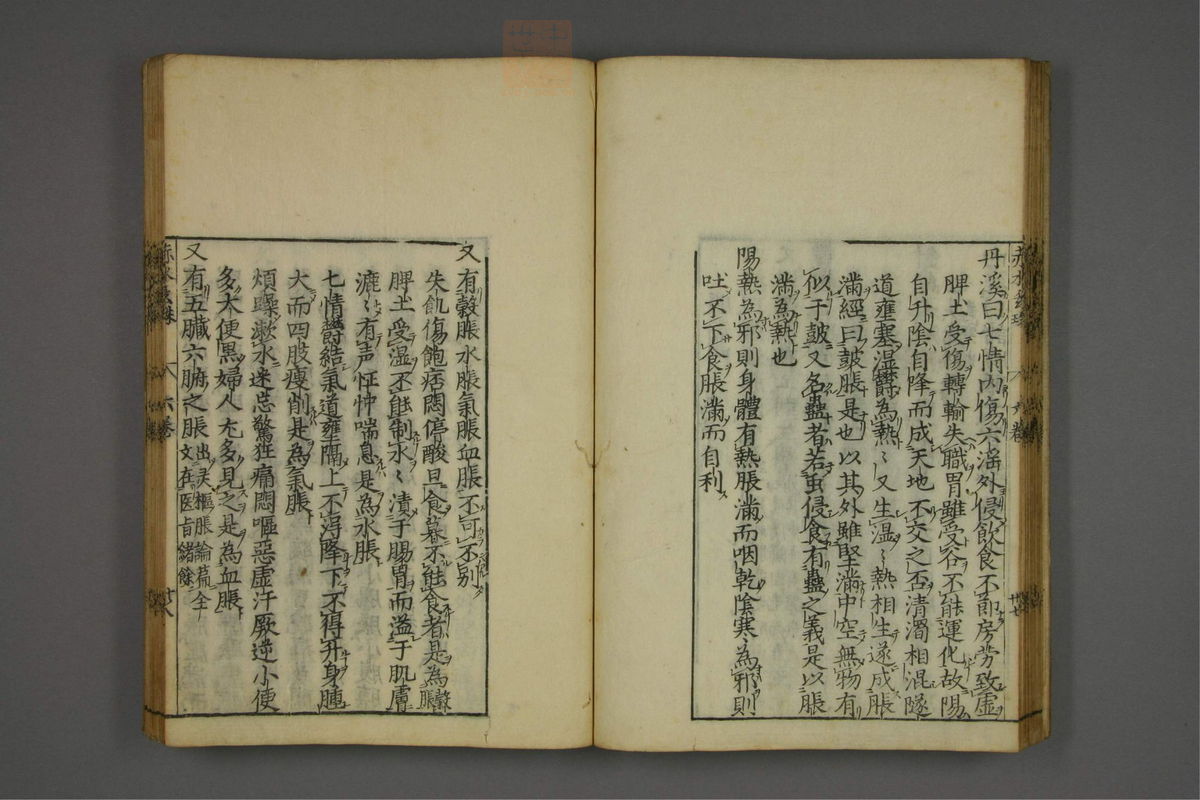 丹溪曰七情內傷六淫外侵飲食不節房劳致虛
脾土受傷轉輸失職胃雖受谷不能運化故陽
自升陰自降而成天地不交之否清濁相混隧
道壅塞濕欝為熱〻又生湿〻熱相生遂成脹
滿經曰皷脹是也以其外雖堅滿中空無物有
似于皷又名蠱者若虫侵食有蠱之義是以脹
滿為熱也
陽熱為邪則身體有熱脹滿而咽乾陰寒〻為邪則
吐不下食脹滿而自利
又有穀脹水脹氣脹血脹不可不別
失飢傷飽痞悶停酸旦食暮不能食者是為穀脹
脾土受湿不能制水〻漬于腸胃而溢于肌膚
漉〻有声怔忡喘息是為水脹
七情欝結氣道壅隔上不得降下不得升身腫
大而四肢瘦削是為氣脹
煩躁漱水迷忘驚狂痛悶嘔惡虛汗厥逆小便
多大便黑婦人尢多見之是為血脹
又有五臟六腑之脹出灵樞脹論篇全文在医旨緒餘
赤水玄珠
六巻
廿八